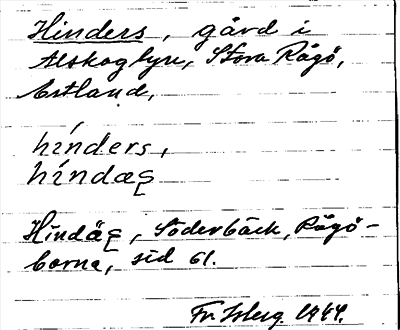 Hinders, gård i
Alskoglyre, Stora Rågö,
Estland,
hínders,
híndæg
Híndäg, Söderbäck, Rågö-
borna, sid 61.
Fr. Isberg 1944.